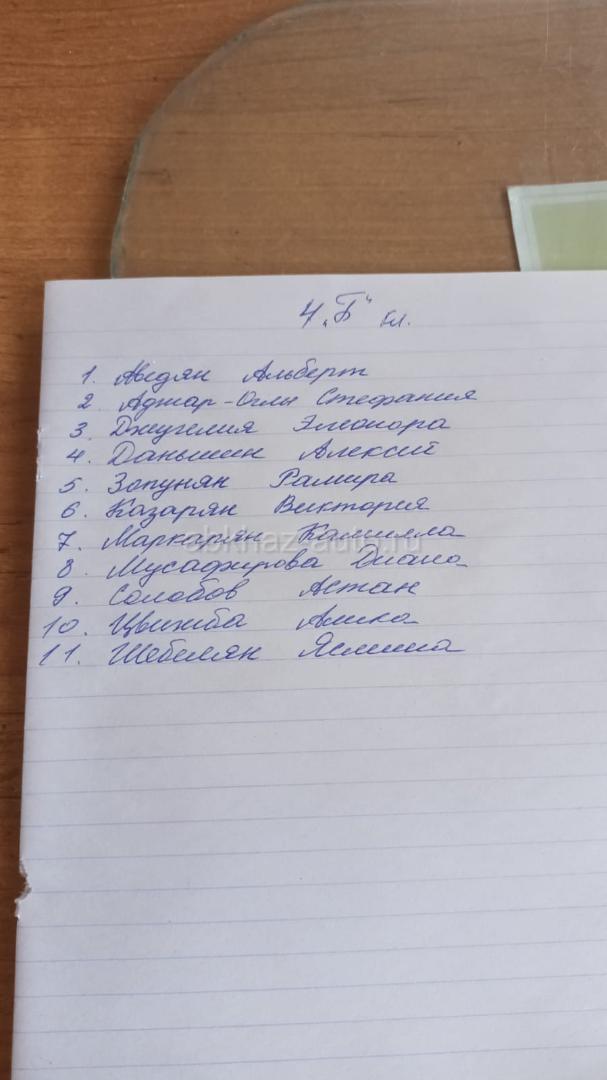 4 „Б“ кл.
1. Авдян Альберт
2 Аджар-Оглы Стефания
3. Джугелия Элеонора
4. Даньшин Алексий
5. Зопунян Рамира
6. Казарян Виктория
7. Маркарян Камилла
8. Мусафирова Диана
9. Солобов Астан
10. Цвижба Амика
11. Шебелян Ясмина
abkhaz-auto.ru